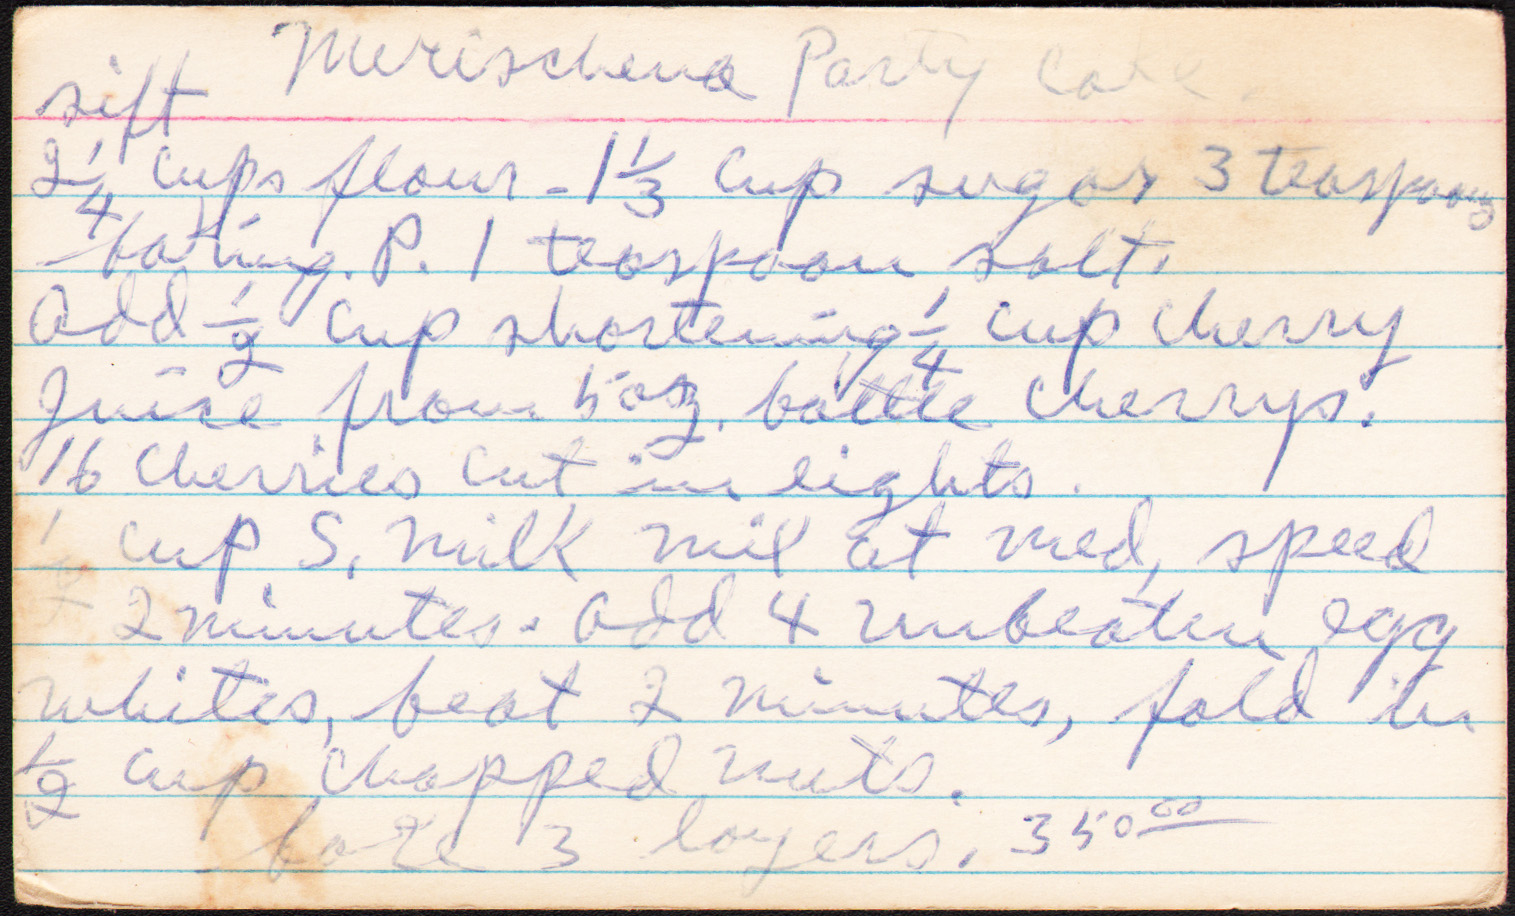 Merischena Party Cake.
sift
2 1/4 cups flour - 1 1/3 cup sugar 3 teaspoons
baking. P. 1 teaspoon salt.
Add 1/2 cup shortening 1/4 cup cherry
Juice from 5 oz. bottle cherrys.
16 cherries cut in eights.
1/2 cup S. milk mix at med, speed
2 minutes. Add 4 unbeaten egg
whites, beat 2 minutes, fold in
1/2 cup chopped nuts.
bake 3 layers. 350 00